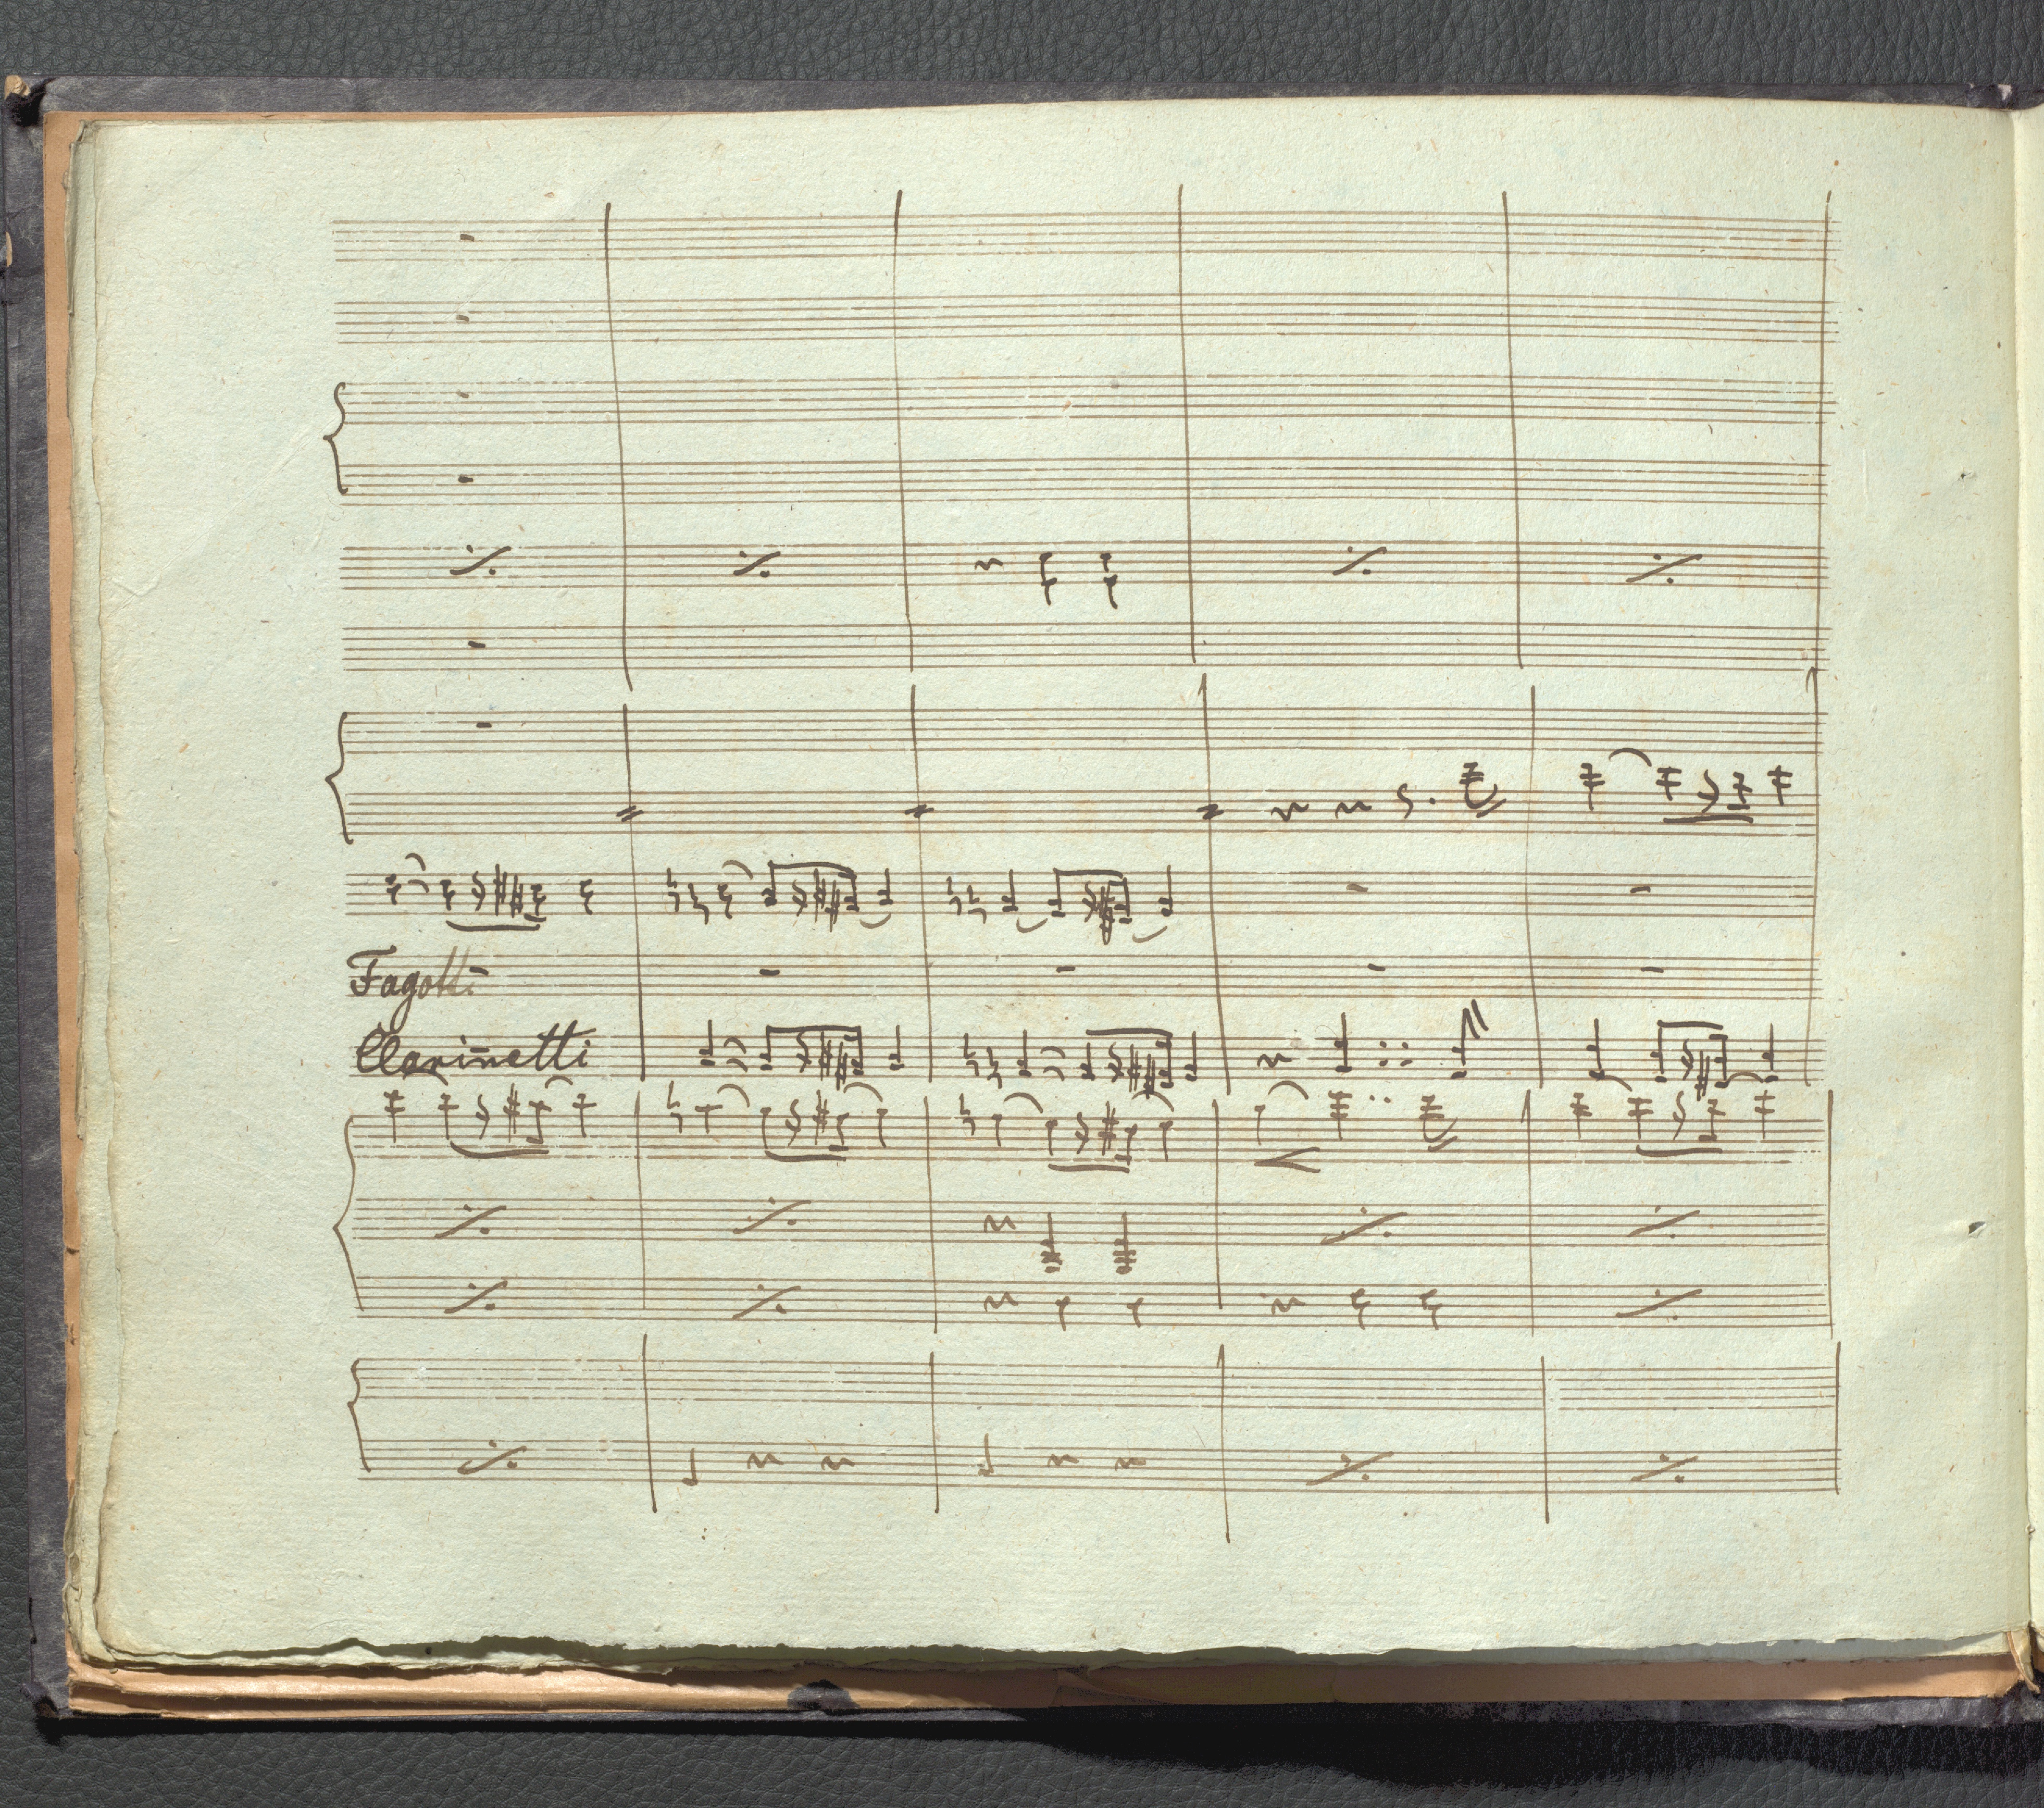 Fagotti
Clarinetti